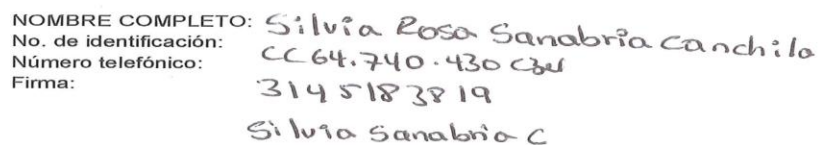 NOMBRE COMPLETO: Silvia Rosa Sanabria Canchila
No. de identificación: CC 64.740.430 C/zal
Número telefónico: 3145183819
Firma: Silvia Sanabria C